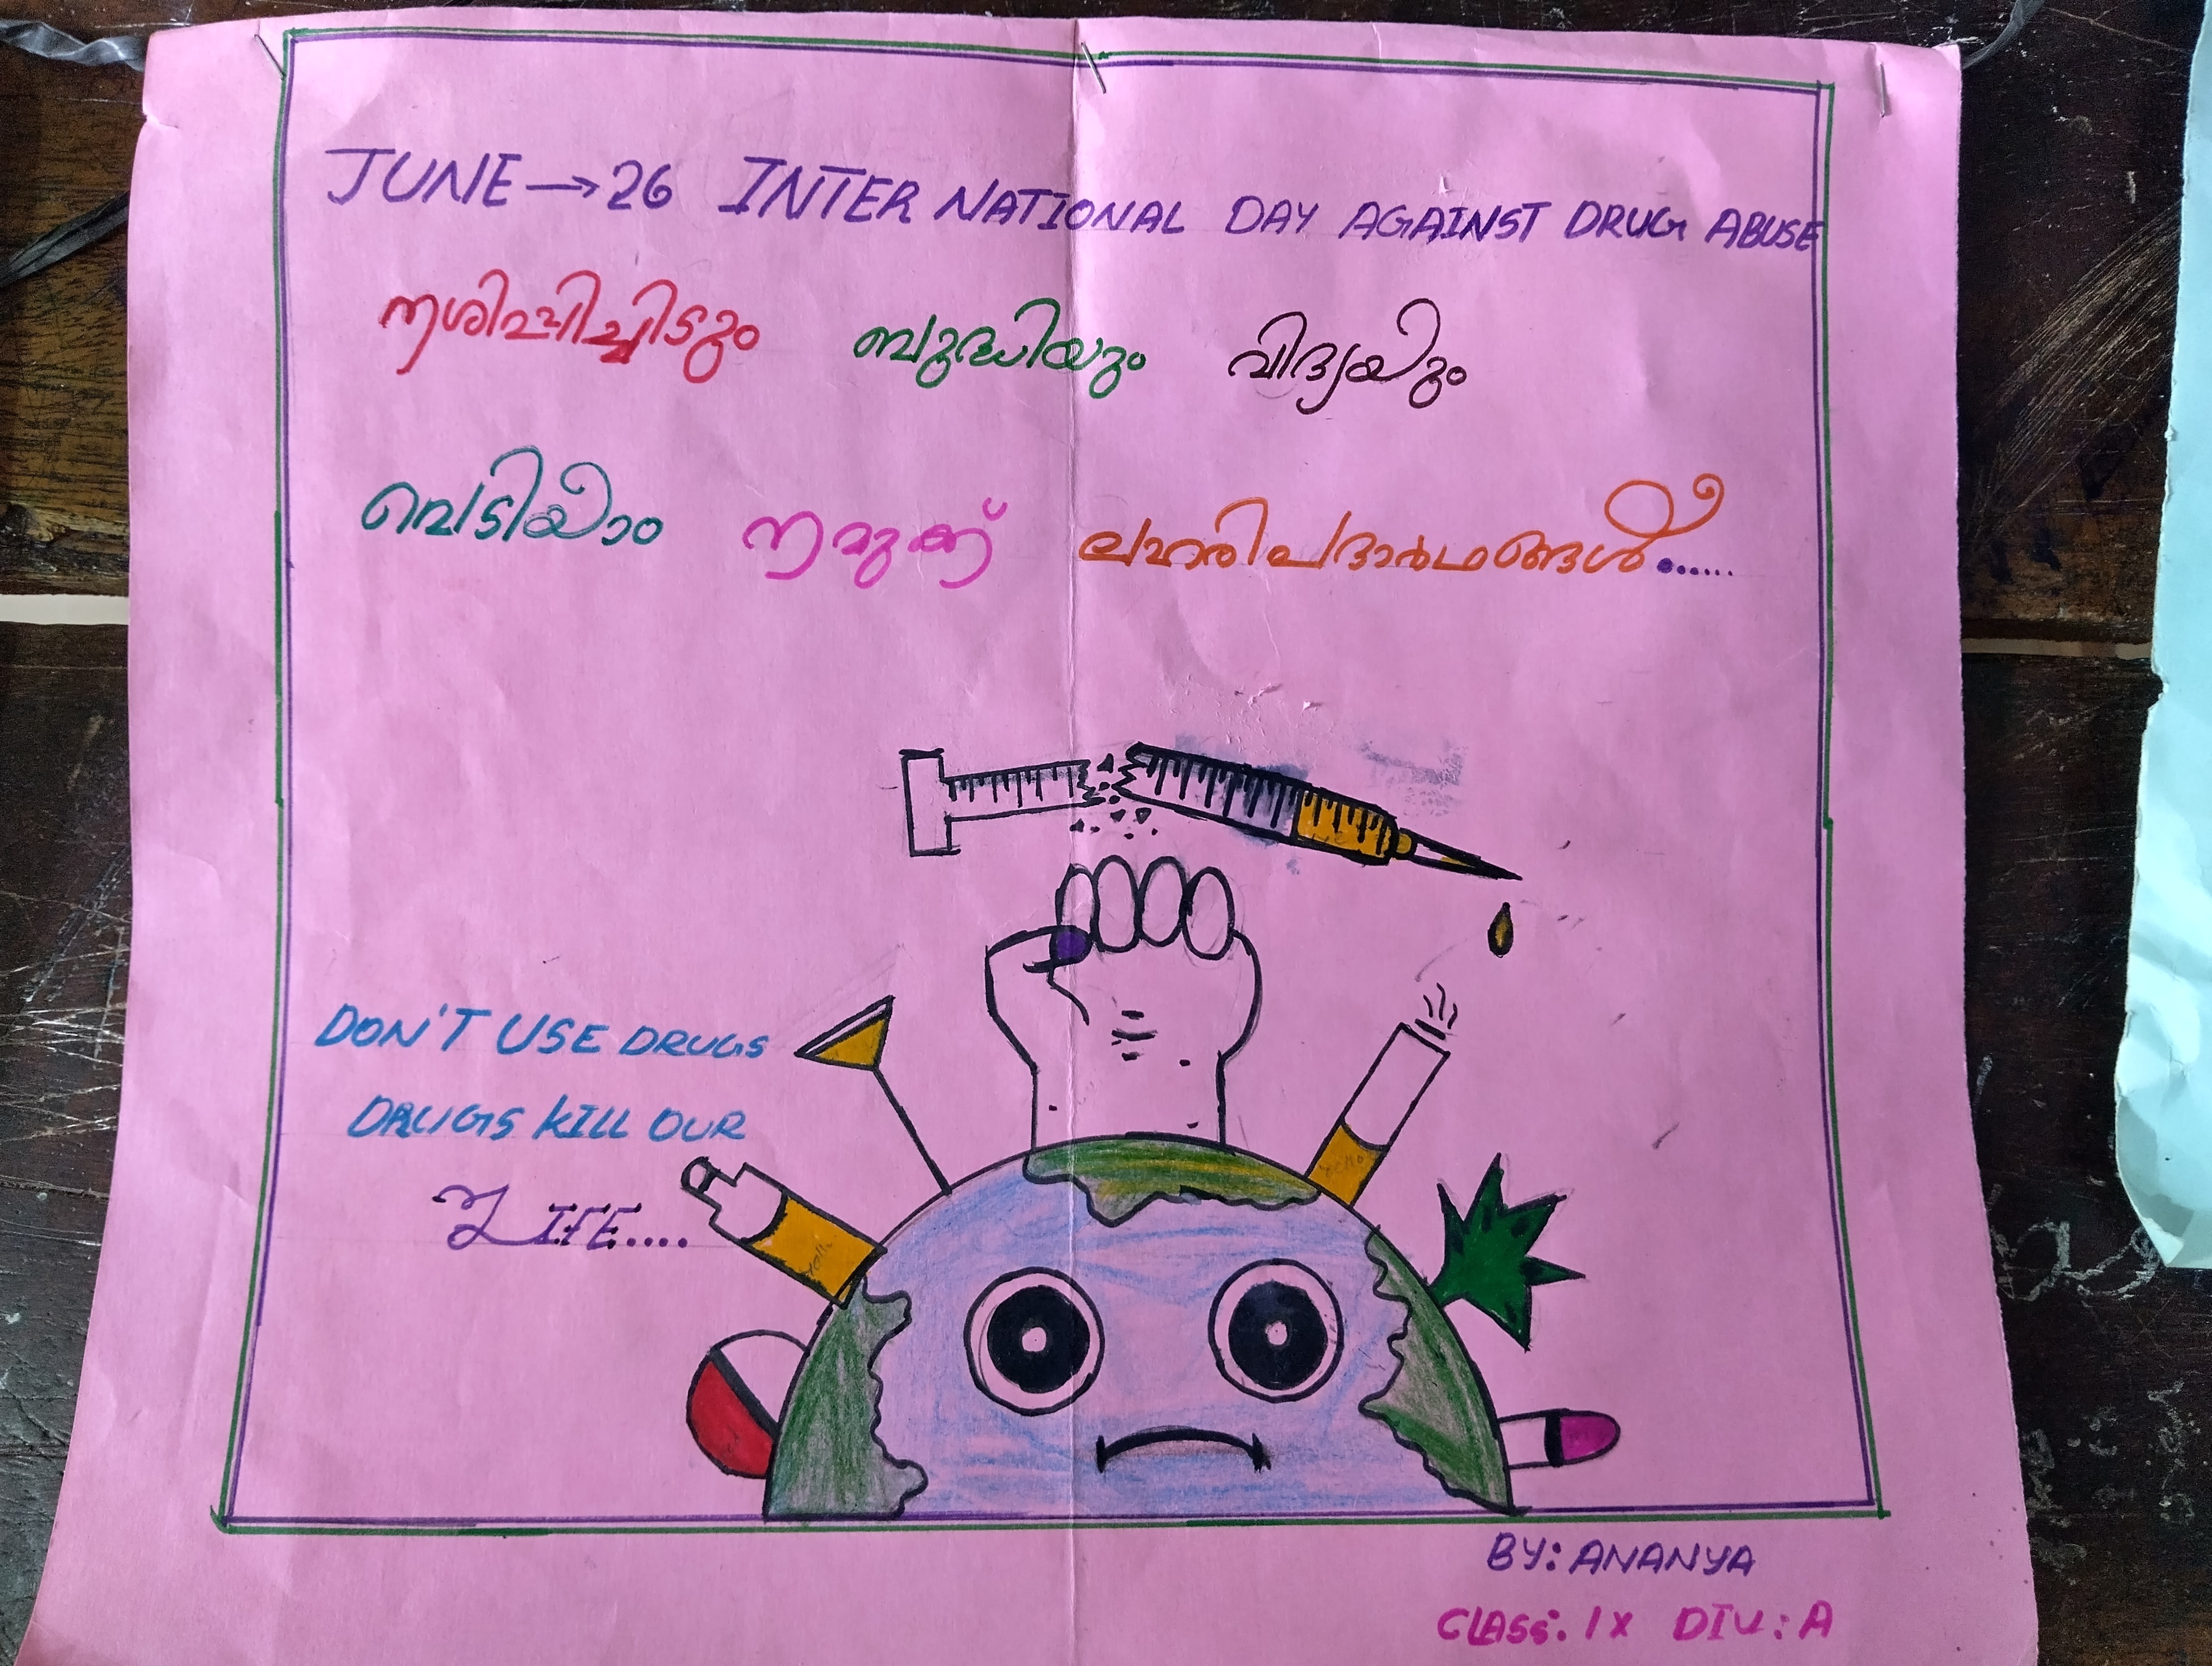 JUNE → 26 INTERNATIONAL DAY AGAINST DRUG ABUSE
നശിപ്പിച്ചിടും ബുദ്ധിയും വിദ്യയും
വെടിയാം നമുക്ക് ലഹരിപദാർഥങ്ങൾ......
DON'T USE DRUGS
DRUGS KILL OUR
LIFE....
BY: ANANYA
CLASS: IX DIV: A